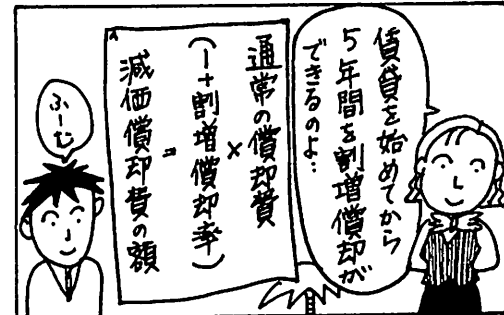 賃貸を始めてから
5年間を割増償却が
できるのよ…
通常の償却費
×
(1+割増償却率)
=
減価償却費の額
ふーむ